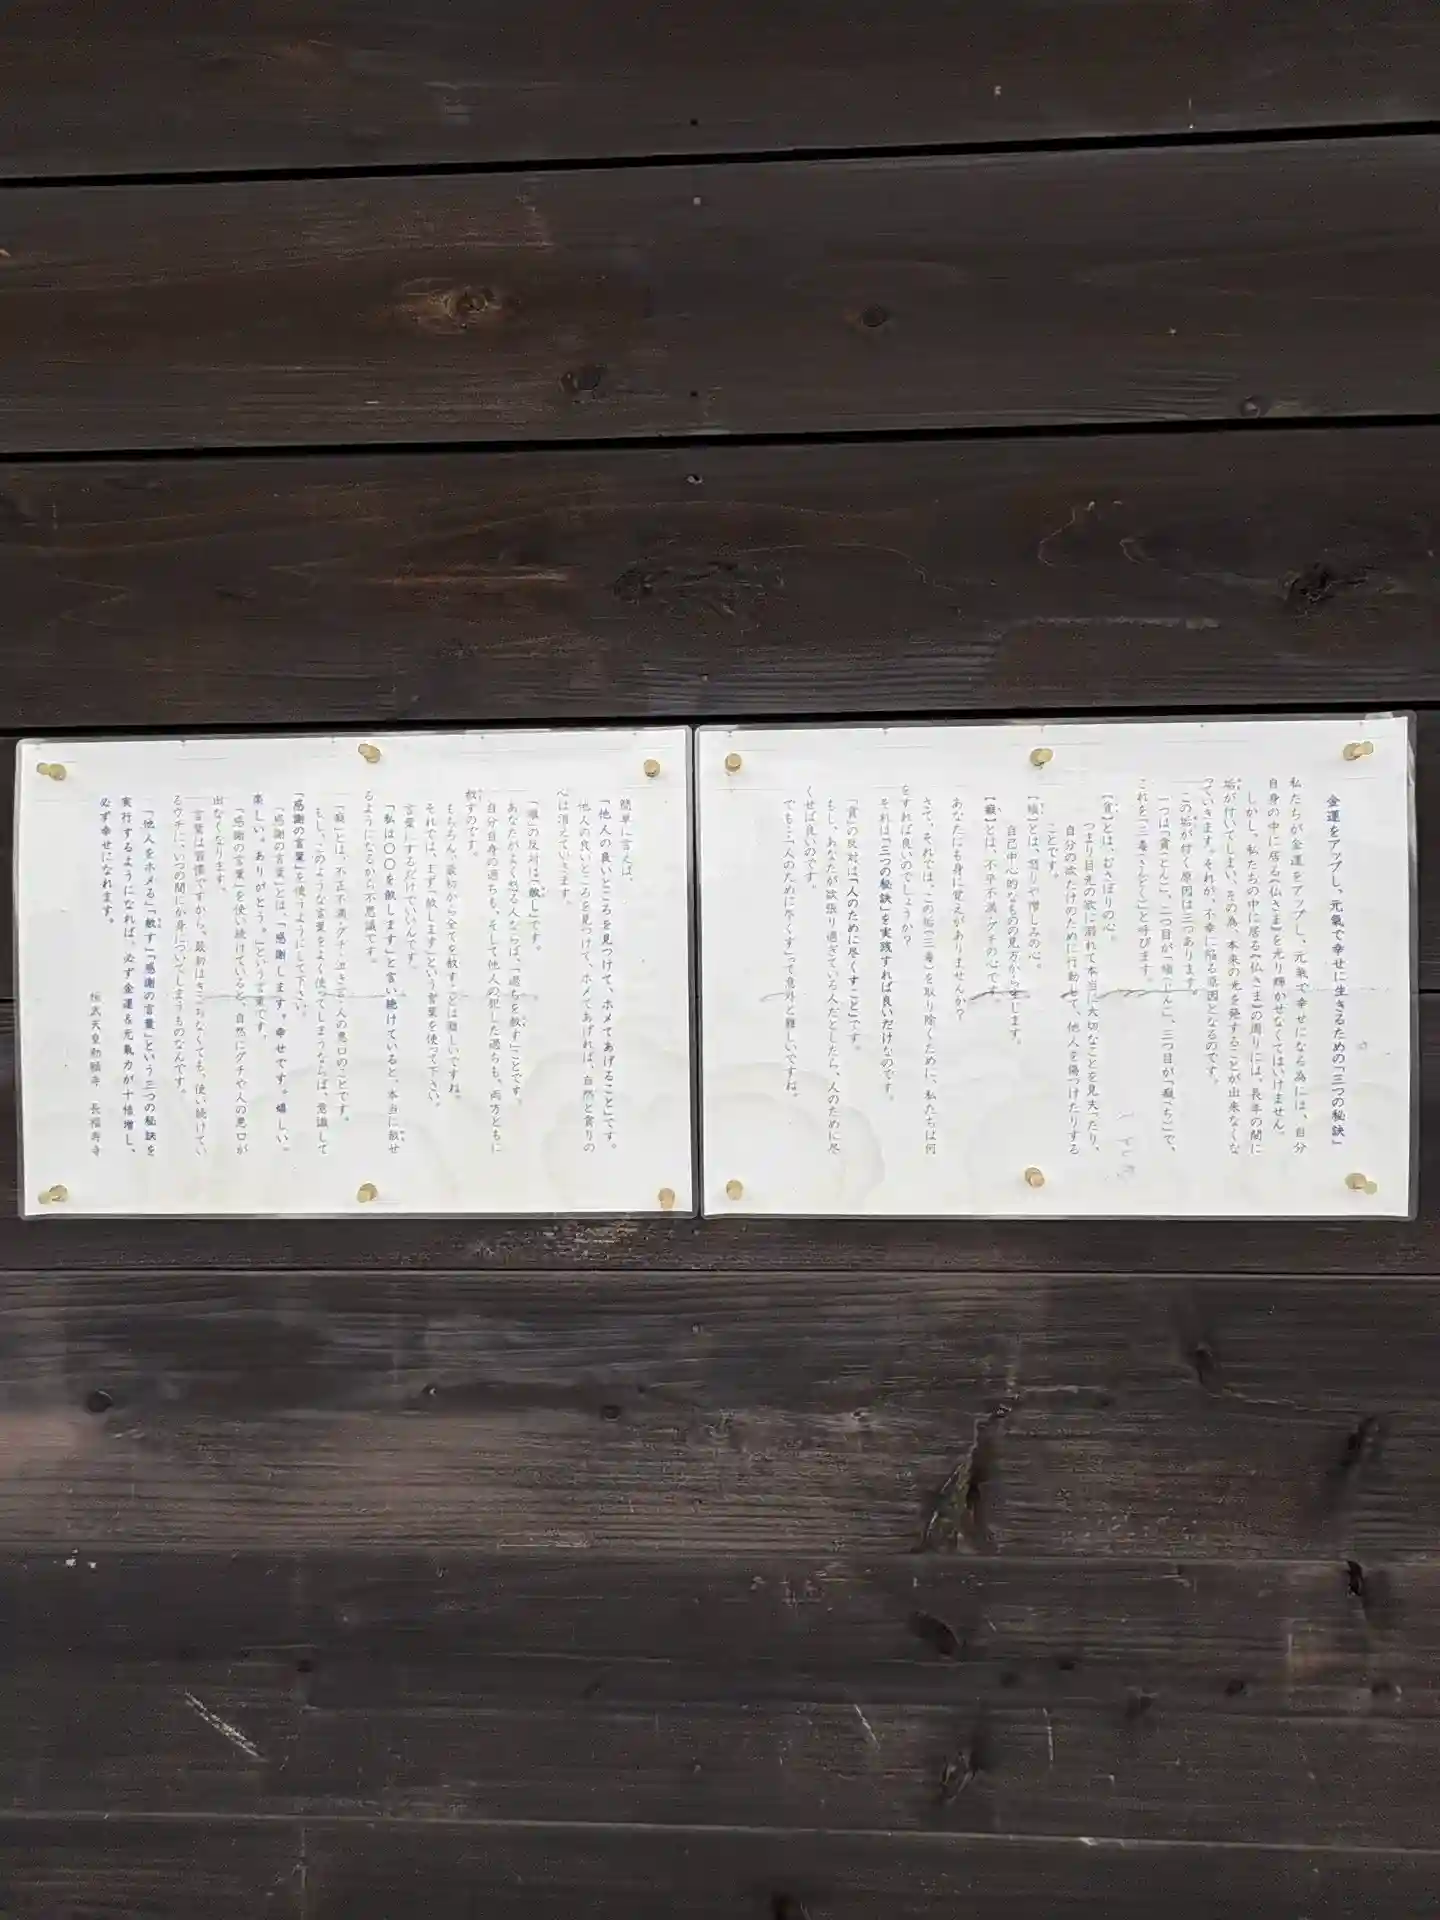 金運をアップし、元氣で幸せに生きるための「三つの秘訣」
私たちが金運をアップし、元氣で幸せになる為には、自分
自身の中に居る《仏さま》を光り輝かせなくてはいけません。
しかし、私たちの中に居る《仏さま》の周りには、長年の間に
垢が付いてしまい、その為、本来の光を発することが出来なくな
っていきます。それが、不幸に陥る原因となるのです。
この垢が付く原因は三つあります。
一つは「貪(とん)」、二つ目が「瞋(じん)」、三つ目が「癡(ち)」で、
これを「三毒(さんどく)」と呼びます。
【貪】とは、むさぼりの心。
つまり目先の欲に溺れて本当に大切なことを見失ったり、
自分の欲だけのために行動して、他人を傷つけたりする
ことです。
【瞋】とは、怒りや憎しみの心。
自己中心的なものの見方から生じます。
【癡】とは、不平不満・グチの心です。
あなたにも身に覚えがありませんか?
さて、それでは、この垢(三毒)を取り除くために、私たちは何
をすれば良いのでしょうか?
それは「三つの秘訣」を実践すれば良いだけなのです。
「貪」の反対は「人のために尽くすこと」です。
もし、あなたが欲張り過ぎている人だとしたら、人のために尽
くせば良いのです。
でも…「人のために尽くす」って意外と難しいですね。
簡単に言えば、
「他人の良いところを見つけて、ホメてあげること」です。
他人の良いところを見つけて、ホメてあげれば、自然と貪りの
心は消えていきます。
「瞋」の反対は「赦し」です。
あなたがよく怒る人ならば、「過ちを赦す」ことです。
自分自身の過ちも、そして他人の犯した過ちも、両方ともに
赦すのです。
もちろん、最初から全てを赦すことは難しいですね。
それでは、まず「赦します」という言葉を使って下さい。
言葉にするだけでいいんです。
「私は〇〇を赦します」と言い続けていると、本当に赦せ
るようになるから不思議です。
「癡」とは、不平不満・グチ・泣き言・人の悪口のことです。
もし、このような言葉をよく使ってしまうならば、意識して
「感謝の言葉」を使うようにして下さい。
「感謝の言葉」とは、「感謝します。幸せです。嬉しい。
楽しい。ありがとう。」という言葉です。
「感謝の言葉」を使い続けていると、自然にグチや人の悪口が
出なくなります。
言葉は習慣ですから、最初はぎこちなくても、使い続けてい
るウチに、いつの間にか身についてしまうものなんです。
「他人をホメる」「赦す」「感謝の言葉」という三つの秘訣を
実行するようになれば、必ず金運&元氣力が十倍増し、
必ず幸せになれます。
桓武天皇勅願寺 長福寿寺